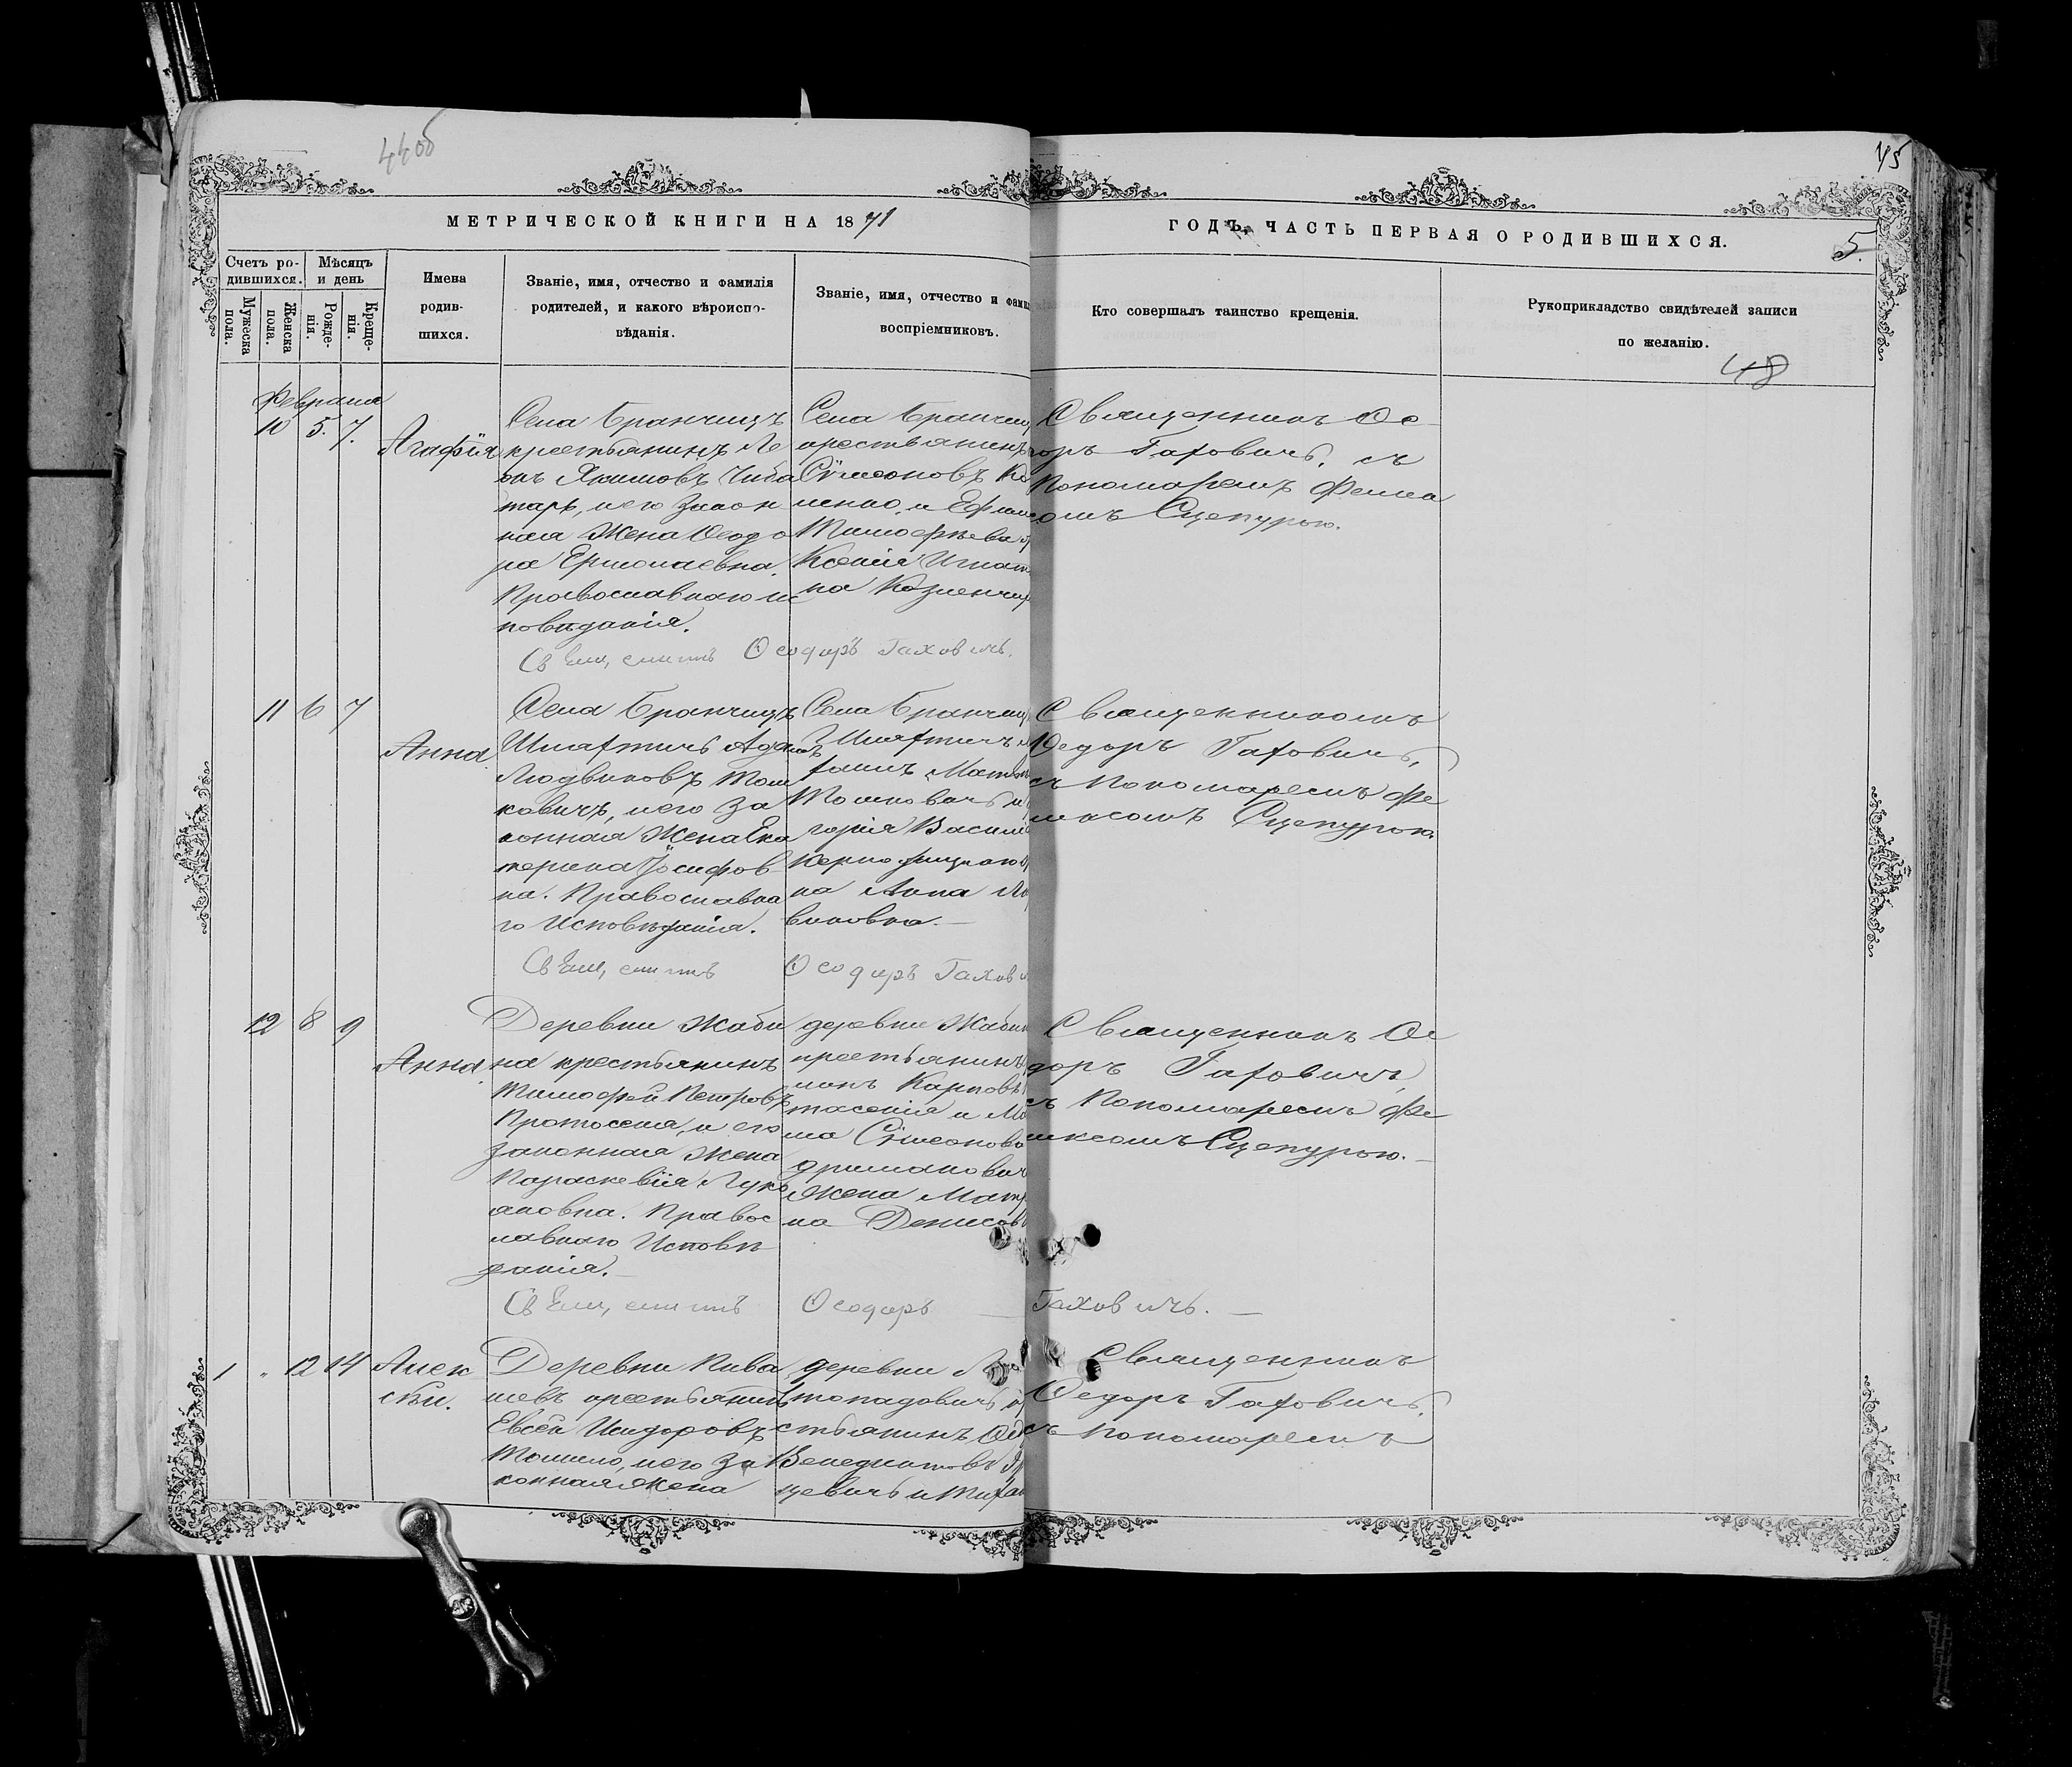 44об
45
МЕТРИЧЕСКОЙ КНИГИ НА 1871
ГОДЪ, ЧАСТЬ ПЕРВАЯ О РОДИВШИХСЯ.
5.
Счетъ ро-
дившихся.
Мужеска
пола.
Женска
пола.
Мѣсяцъ
и день
Рожде-
нія.
Креще-
нія.
Имена
родив-
шихся.
Званіе, имя, отчество и фамилія
родителей, и какого вѣроиспо-
вѣданія.
Званіе, имя, отчество и фами
воспріемниковъ.
Кто совершалъ таинство крещенія.
Рукоприкладство свидѣтелей записи
по желанію.
48
Февраля
10 5. 7.
Агафія
Села Бранчицъ
крестьянинъ Ле
онъ Якимовъ Чиба
тарь, и его закон
ная жена Ѳеодо
ра Ермолаевна.
Православнаго ис
повѣданія.
Села Бранчиц
крестьянинъ
Сѵмеоновъ
Тимофѣева
Ксенія Игнат
на
Священникъ Ѳе
оръ Гаховичъ, съ
Пономаремъ Фелик
омъ Сцепурою.
Священникъ Ѳеодоръ Гаховичъ.
11 6 7
Анна
Села Бранчицъ
Шляхтичъ Адамъ
Людвиковъ Том
ковичъ, и его за
конная жена Ека
терина Іосифов
на. Православна
го Исповѣданія.
Села Бранчиц
Шляхтичъ
Томковичъ и
горія Васил
на Анна Лю
виковна.—
Священникомъ
Ѳедоръ Гаховичъ,
съ Пономаремъ Фе
ликсомъ Сцепурою.
Священникъ Ѳеодоръ Гахови
12 8 9
Анна
Деревни Жаби
на крестьянинъ
Тимофей Петровъ
Протосеня, и его
законная жена
Параскевія Луки
ановна. Правос
лавнаго Исповѣ
данія.—
деревни Жабин
крестьянинъ
Карповъ
тасеня и
Сѵмеонова
жена Матр
на Денисов
Священникъ Ѳе
доръ Гаховичъ,
съ Пономаремъ Фе
ликсомъ Сцепурою.—
Священникъ Ѳеодоръ — Гаховичъ.—
1 „ 12 14
Алек
сѣй.
Деревни Кива
левъ крестьянинъ
Евсей Исидоровъ
Томило, и его За
конная жена
деревни
топадовичъ кр
стьянинъ Ѳед
Венедиктовъ
цевичъ и
Священникъ
Ѳедоръ Гаховичъ,
съ Пономаремъ